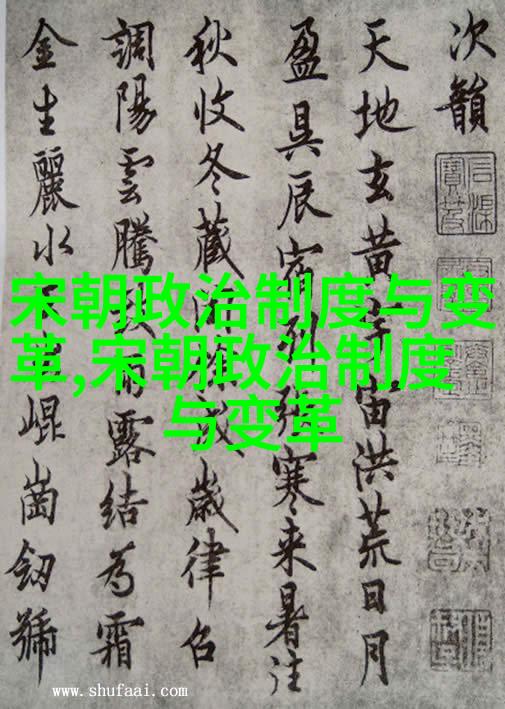 次韻
天地玄黄宙洪荒日月
盈昃辰宿列張寒来暑往
秋收冬藏歲律召
調陽雲騰雨露結為霜
金生麗水崐崗劒號
宋朝政治制度与变
革,宋朝政治制度
与变革
www.shufaai.com